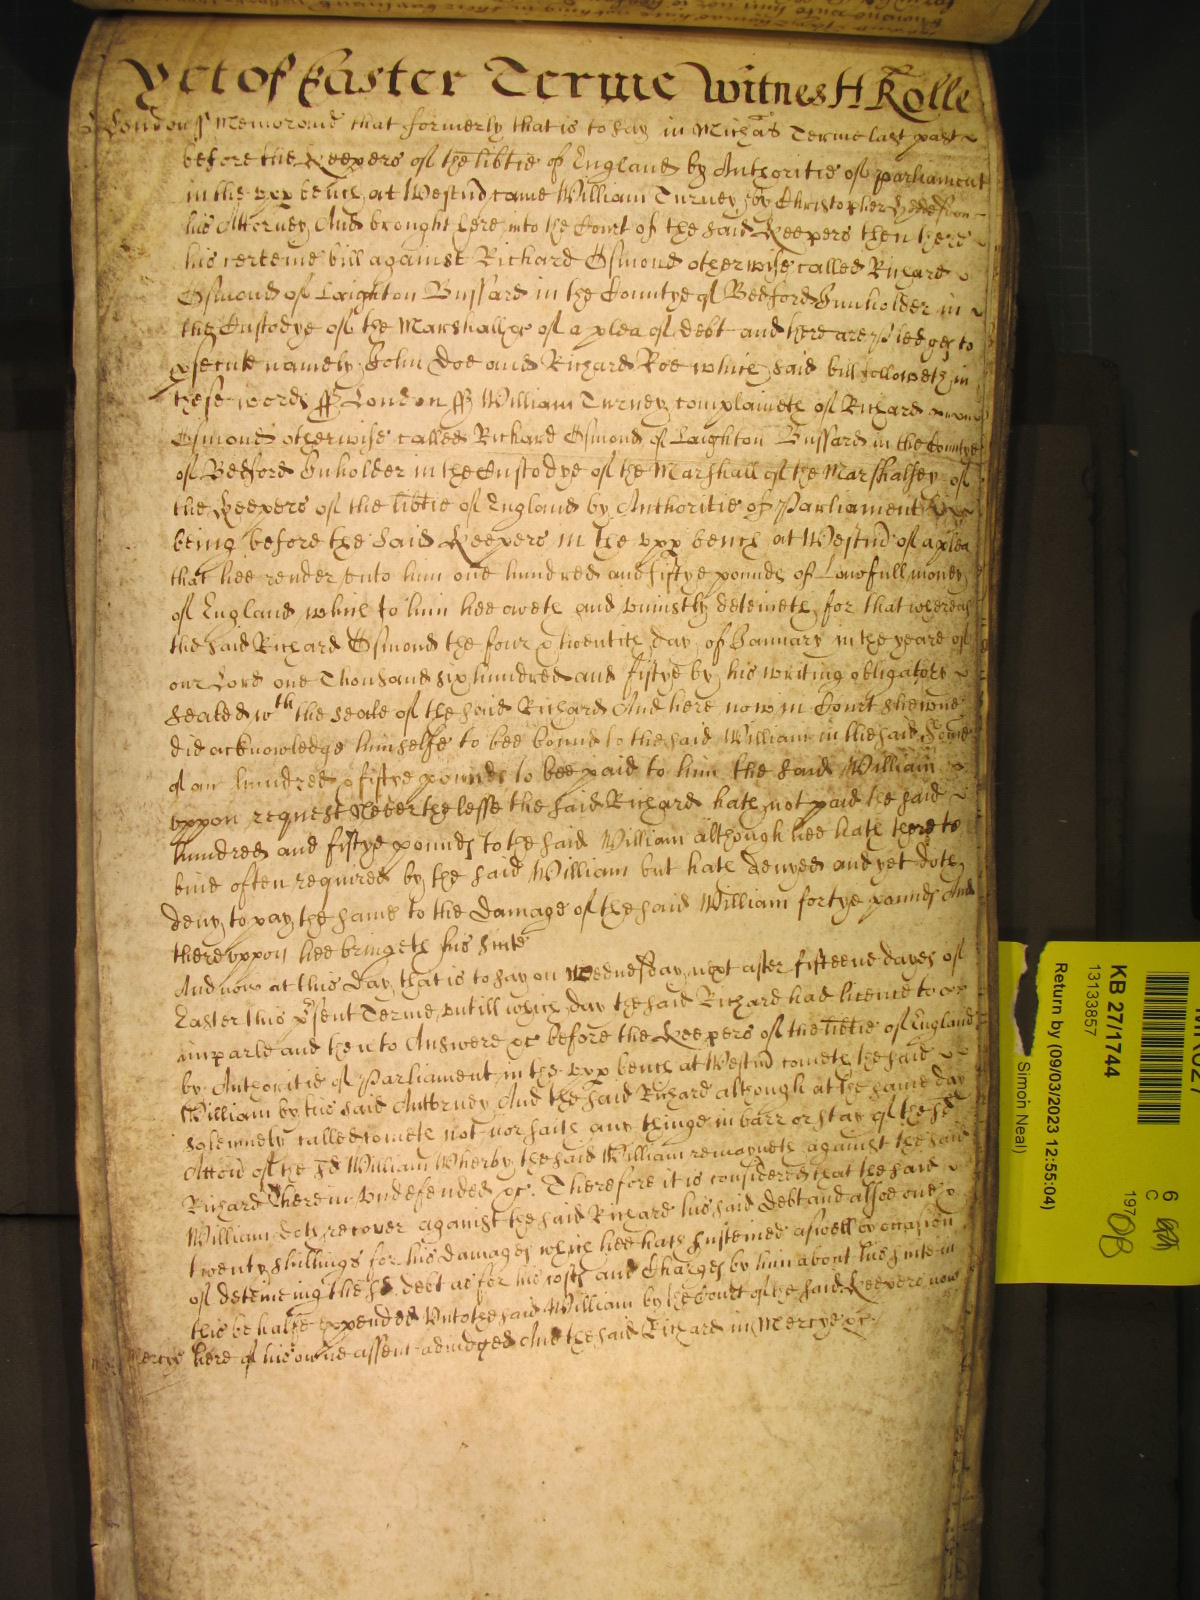 Yet of Easter Terme Witnes H Rolle
London ss Memorand that formerly that is to say in Michas Terme last past
before the Keepers of the libtie of England by Authoritie of parliament
in the vpp bench at Westm came William Turney by Christopher
his Attorney And brought here into the Court of the said Keepers then there
his certeine bill against Richard Osmond otherwise called Richard
Osmond of Laighton Bussard in the Countye of Bedford Innholder in
the Custodye of the Marshall &c of a plea of debt and there are pledges to
psecute namely John Doe and Richard Roe which said bill followeth in
these words ss London ss William Turney complaineth of Richard
Osmond otherwise called Richard Osmond of Laighton Bussard in the Countye
of Bedford Inholder in the Custodye of the Marshall of the Marshalsey of
the Keepers of the libtie of England by Authoritie of Parliament
being before the said Keepers in the vpp bench at Westm of a plea
that hee render vnto him one hundred and fiftye pounds of Lawfull money
of England which to him hee oweth and vniustly deteineth for that whereas
the said Richard Osmond the four & twentith day of January in the yeare of
our Lord one Thousand six hundred and fiftye by his writing obligatory
sealed wth the seale of the said Richard And here now in Court shewne
did acknowledge himselfe to bee bound to the said William in the said Some
of an hundred & fiftye pounds to bee paid to him the said William
vppon request Neverthelesse the said Richard hath not paid the said
hundred and fiftye pounds to the said William although hee hath thereto
bine often required by the said William but hath denyed and yet doth
deny to pay the same to the damage of the said William fortye pounds And
therevppon hee bringeth his suite
And now at this day that is to say on Wednesday next after fifteene dayes of
Easter this psent Terme vntill which day the said Richard had licence to
imparle and then to Answere &c before the Keepers of the libtie of England
by Authoritie of Parliament in the vpp bench at Westm cometh the said
William by his said Attorney And the said Richard although at the same day
solemnely called cometh not nor saith any thinge in barr or stay of the sd
Accon of the sd William Wherby the said William remayneth against the said
Richard therein vndefended &c. Therefore it is considered that the said
William doth recover against the said Richard his said debt and alsoe one &
twenty shillings for his damages which hee hath susteined aswell by occasion
of deteineing the sd debt as for his costs and Charges by him about his suite in
this behalfe expended Vnto the said William by the Court of the said Keepers now
Mercye here of his owne assent adiudged And the said Richard in Mercye &c.
KB 27/1744
13133857
Return by (09/03/2023 12:55:04)
Simon Neal)
6
C
197